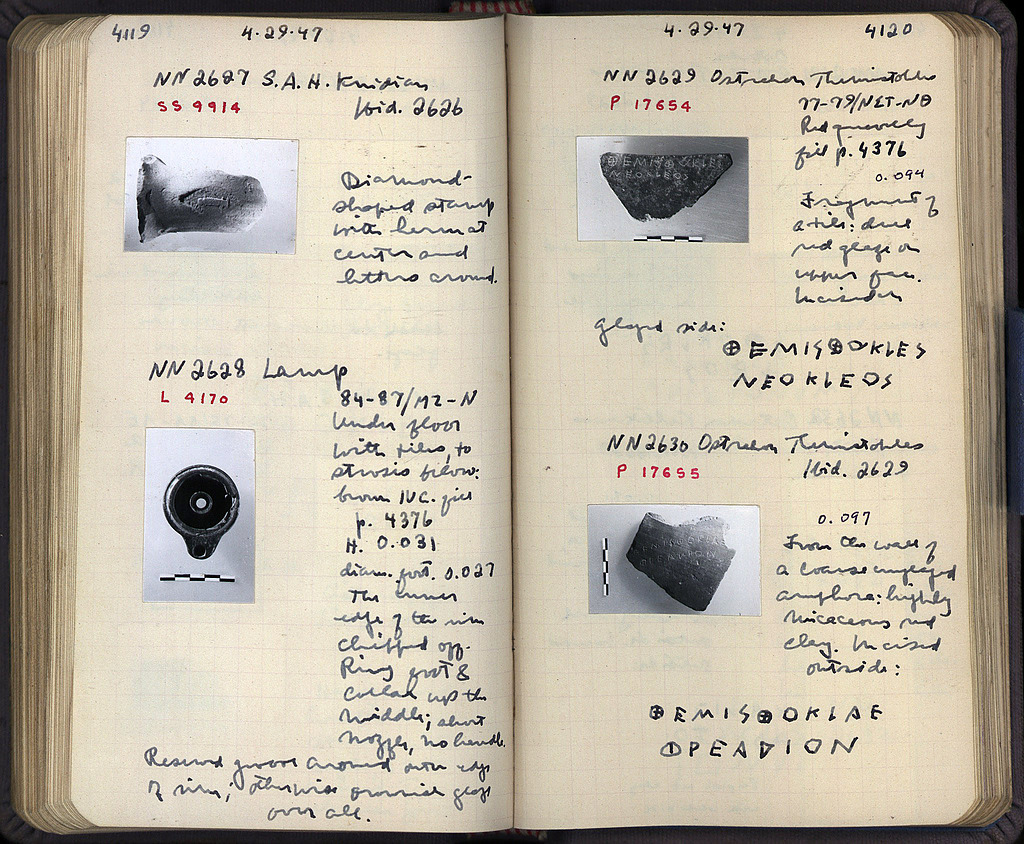 4119 4·29·47
NN 2627 S.A.H. Knidian
SS 9914 Ibid. 2626
Diamond-
shaped stamp
with herm at
center and
letters around.
NN 2628 Lamp
L 4170 84-87/ΜΖ-Ν
Under floor
with tiles, to
strosis below:
brown IV C. fill
p. 4376
H. 0.031
diam. foot. 0.027
The inner
edge of the rim
chipped off.
Ring foot &
collar up the
middle; short
nozzle, no handle.
Reserved groove around outer edge
of rim; otherwise brownish glaze
over all.
4·29·47 4120
NN 2629 Ostrakon Themistokles
P 17654 77-79/ΝΣΤ-ΝΘ
Red gravelly
fill p. 4376
0.094
Fragment of
a tile: dull
red glaze on
upper face.
Incised on
glazed side:
⊕EMIS⊕OKLES
NEOKLEOS
NN 2630 Ostrakon Themistokles
P 17655 Ibid. 2629
0.097
From the wall of
a coarse unglazed
amphora: highly
micaceous red
clay. Incised
outside:
⊕EMIS⊕OKLAE
ΦPEADION